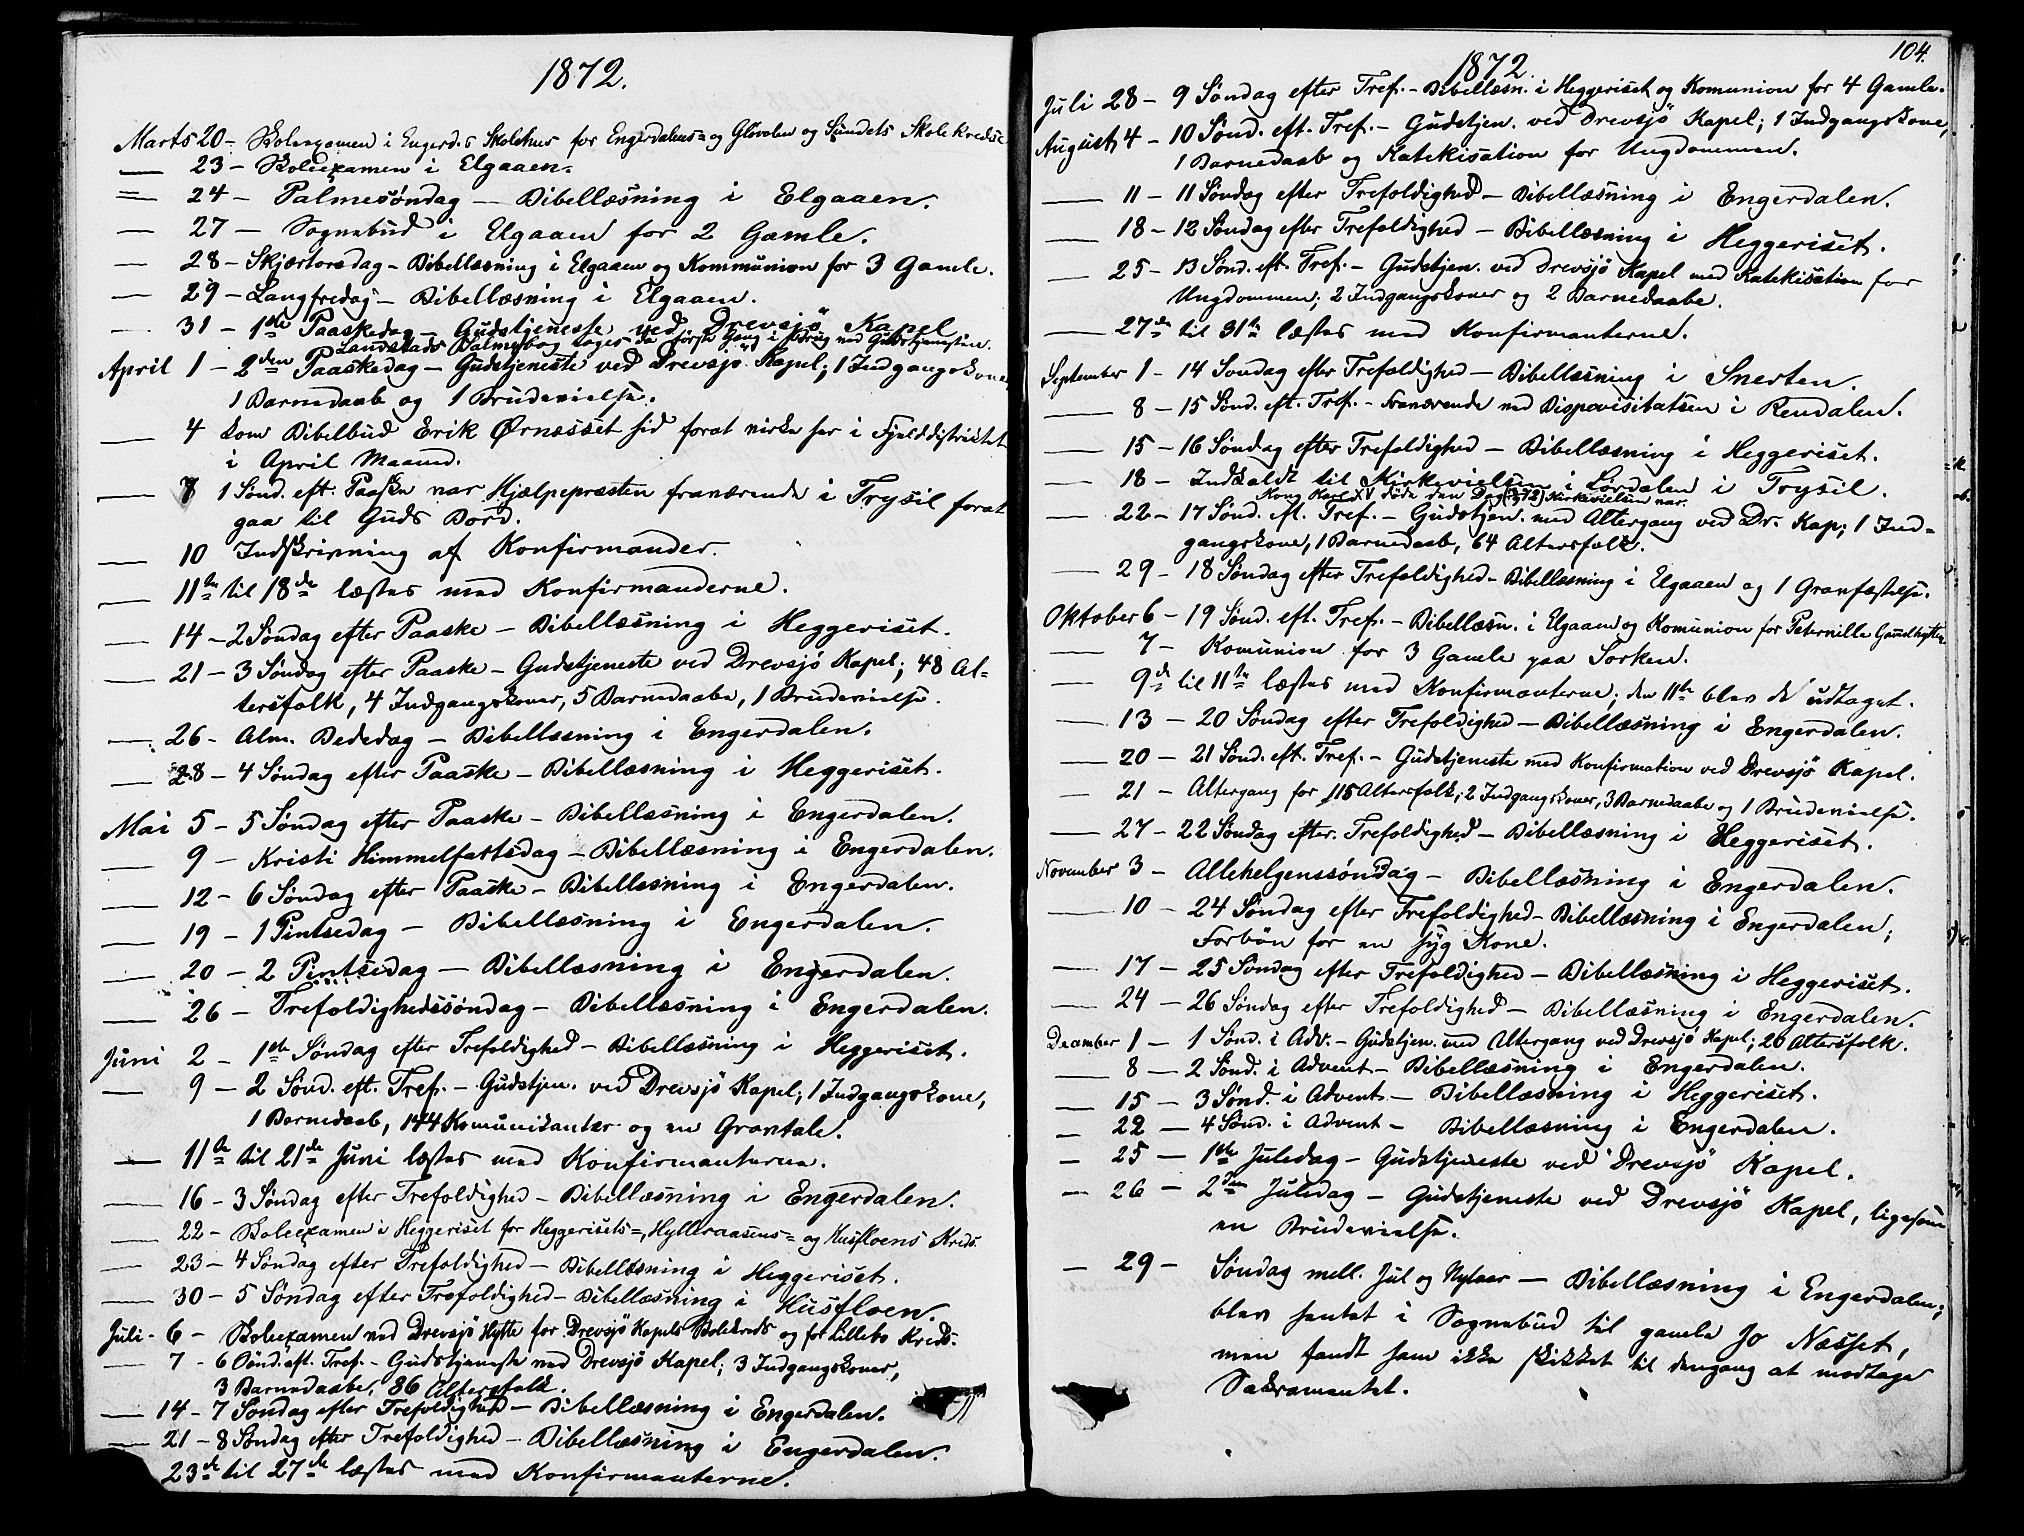 1872.
Marts 20 – Skoleexamen i Engerd.s Skolehus for Engerdalens= og Glövolen og Sundets Skolekredse
— 23 – Skoleexamen i Elgaaen.
— 24 – Palmesöndag – Bibellæsning i Elgaaen.
— 27 – Sognebud i Elgaaen for 2 Gamle.
— 28 – Skjærtorsdag – Bibellæsning i Elgaaen og Kommunion for 3 Gamle.
— 29 – Langfredag – Bibellæsning i Elgaaen.
— 31 – 1ste Paaskedag – Gudstjeneste ved Drevsjö Kapel
Landstads Salmebog toges da förste Gang i Brug ved Gudstjenesten.
April 1 – 2den Paaskedag – Gudstjeneste ved Drevsjö Kapel; 1 Indgangskone
1 Barnedaab og 1 Brudevielse.
— 4 kom Bibelbud Erik Ørnæsset hid forat virke her i Fjelddistriktet
i April Maaned.
— 7 1 Sönd. eft. Paaske var Hjælpepræsten fraværende i Trysil forat
gaa til Guds Bord.
— 10 Indskrivning af Konfirmander.
— 11te til 18de læstes med Konfirmanderne.
— 14 – 2 Söndag efter Paaske – Bibellæsning i Heggeriset.
— 21 – 3 Söndag efter Paaske – Gudstjeneste ved Drevsjö Kapel; 48 Al-
tersfolk, 4 Indgangskoner, 5 Barnedaabe, 1 Brudevielse.
— 26 – Alm. Bededag – Bibellæsning i Engerdalen.
— 28 – 4 Söndag efter Paaske – Bibellæsning i Heggeriset.
Mai 5 – 5 Söndag efter Paaske – Bibellæsning i Engerdalen.
— 9 – Kristi Himmelfartsdag – Bibellæsning i Engerdalen.
— 12 – 6 Söndag efter Paaske – Bibellæsning i Engerdalen.
— 19 – 1 Pintsedag – Bibellæsning i Engerdalen.
— 20 – 2 Pintsedag – Bibellæsning i Engerdalen.
— 26 – Trefoldighedssöndag – Bibellæsning i Engerdalen.
Juni 2 – 1ste Söndag efter Trefoldighed – Bibellæsning i Heggeriset.
— 9 – 2 Sönd. eft. Tref. – Gudstjen. ved Drevsjö Kapel; 1 Indgangskone,
1 Barnedaab, 144 Komunikanter og en Gravtale.
— 11te til 21de Juni læstes med Konfirmanterne.
— 16 – 3 Söndag efter Trefoldighed – Bibellæsning i Engerdalen.
— 22 – Skoleexamen i Heggeriset for Heggerisets=, Hylleraasens= og Husfloens Kreds.
— 23 – 4 Söndag efter Trefoldighed – Bibellæsning i Heggeriset.
— 30 – 5 Söndag efter Trefoldighed – Bibellæsning i Husfloen.
Juli – 6 – Skoleexamen ved Drevsjö Hytte for Drevsjö Kapels Skolekreds og for Lillebo Kreds.
— 7 – 6 Sönd. eft. Tref. – Gudstjeneste ved Drevsjö Kapel; 3 Indgangskoner,
3 Barnedaabe, 86 Altersfolk.
— 14 – 7 Söndag efter Trefoldighed – Bibellæsning i Engerdalen.
— 21 – 8 Söndag efter Trefoldighed – Bibellæsning i Engerdalen.
23de til 27de læstes med Konfirmanterne.
104.
1872.
Juli 28 – 9 Söndag efter Tref. – Bibellæsn. i Heggeriset og Komunion for 4 Gamle.
August 4 – 10 Sönd. eft. Tref. – Gudstjen. ved Drevsjö Kapel; 1 Indgangskone,
1 Barnedaab og Katekisation for Ungdommen.
— 11 – 11 Söndag efter Trefoldighed – Bibellæsning i Engerdalen.
— 18 – 12 Söndag efter Trefoldighed – Bibellæsning i Heggeriset.
— 25 – 13 Sönd. eft. Tref. – Gudstjen. ved Drevsjö Kapel med Katekisation for
Ungdommen; 2 Indgangskoner og 2 Barnedaabe.
— 27de til 31te læstes med Konfirmanterne.
September 1 – 14 Söndag efter Trefoldighed – Bibellæsning i Snerten.
— 8 – 15 Sönd. eft. Tref. – Fraværende ved Bispevisitatsen i Rendalen.
— 15 – 16 Söndag efter Trefoldighed – Bibellæsning i Heggeriset.
— 18 – Indkaldt til Kirkevielsen i Lördalen i Trysil.
Kong Karl XV döde den Dag (18/9 72) Kirkevielsen var.
— 22 – 17 Sönd. eft. Tref. – Gudstjen. med Altergang ved Dr. Kap; 1 Ind-
gangskone, 1 Barnedaab, 64 Altersfolk.
— 29 – 18 Söndag efter Trefoldighed – Bibellæsning i Elgaaen og 1 Gravfæstelse.
Oktober 6 – 19 Sönd. eft. Tref. – Bibellæsn. i Elgaaen og Komunion for Peternille
— 7 – Komunion for 3 Gamle paa Sorken.
— 9de til 11te læstes med Konfirmanterne; den 11te blev de udtaget.
— 13 – 20 Söndag efter Trefoldighed – Bibellæsning i Engerdalen.
— 20 – 21 Sönd. eft. Tref. – Gudstjeneste med Konfirmation ved Drevsjö Kapel.
— 21 – Altergang for 115 Altersfolk; 2 Indgangskoner, 3 Barnedaabe og 1 Brudevielse.
— 27 – 22 Söndag efter Trefoldighed – Bibellæsning i Heggeriset.
November 3 – Allehelgenssöndag – Bibellæsning i Engerdalen.
— 10 – 24 Söndag efter Trefoldighed – Bibellæsning i Engerdalen;
Forbön for en syg Kone.
— 17 – 25 Söndag efter Trefoldighed – Bibellæsning i Heggeriset.
— 24 – 26 Söndag efter Trefoldighed – Bibellæsning i Engerdalen.
December 1 – 1 Sönd. i Adv. – Gudstjen. med Altergang ved Drevsjö Kapel; 20 Altersfolk.
— 8 – 2 Sönd. i Advent – Bibellæsning i Engerdalen.
— 15 – 3 Sönd. i Advent – Bibellæsning i Heggeriset.
— 22 – 4 Sönd. i Advent – Bibellæsning i Engerdalen.
— 25 – 1ste Juledag – Gudstjeneste ved Drevsjö Kapel.
— 26 – 2den Juledag – Gudstjeneste ved Drevsjö Kapel, ligesom
en Brudevielse.
— 29 – Söndag mell. Jul og Nytaar – Bibellæsning i Engerdalen;
blev hentet i Sognebud til gamle Jo Næsset,
men fandt ham ikke skikket til dengang at modtage
Sakramentet.